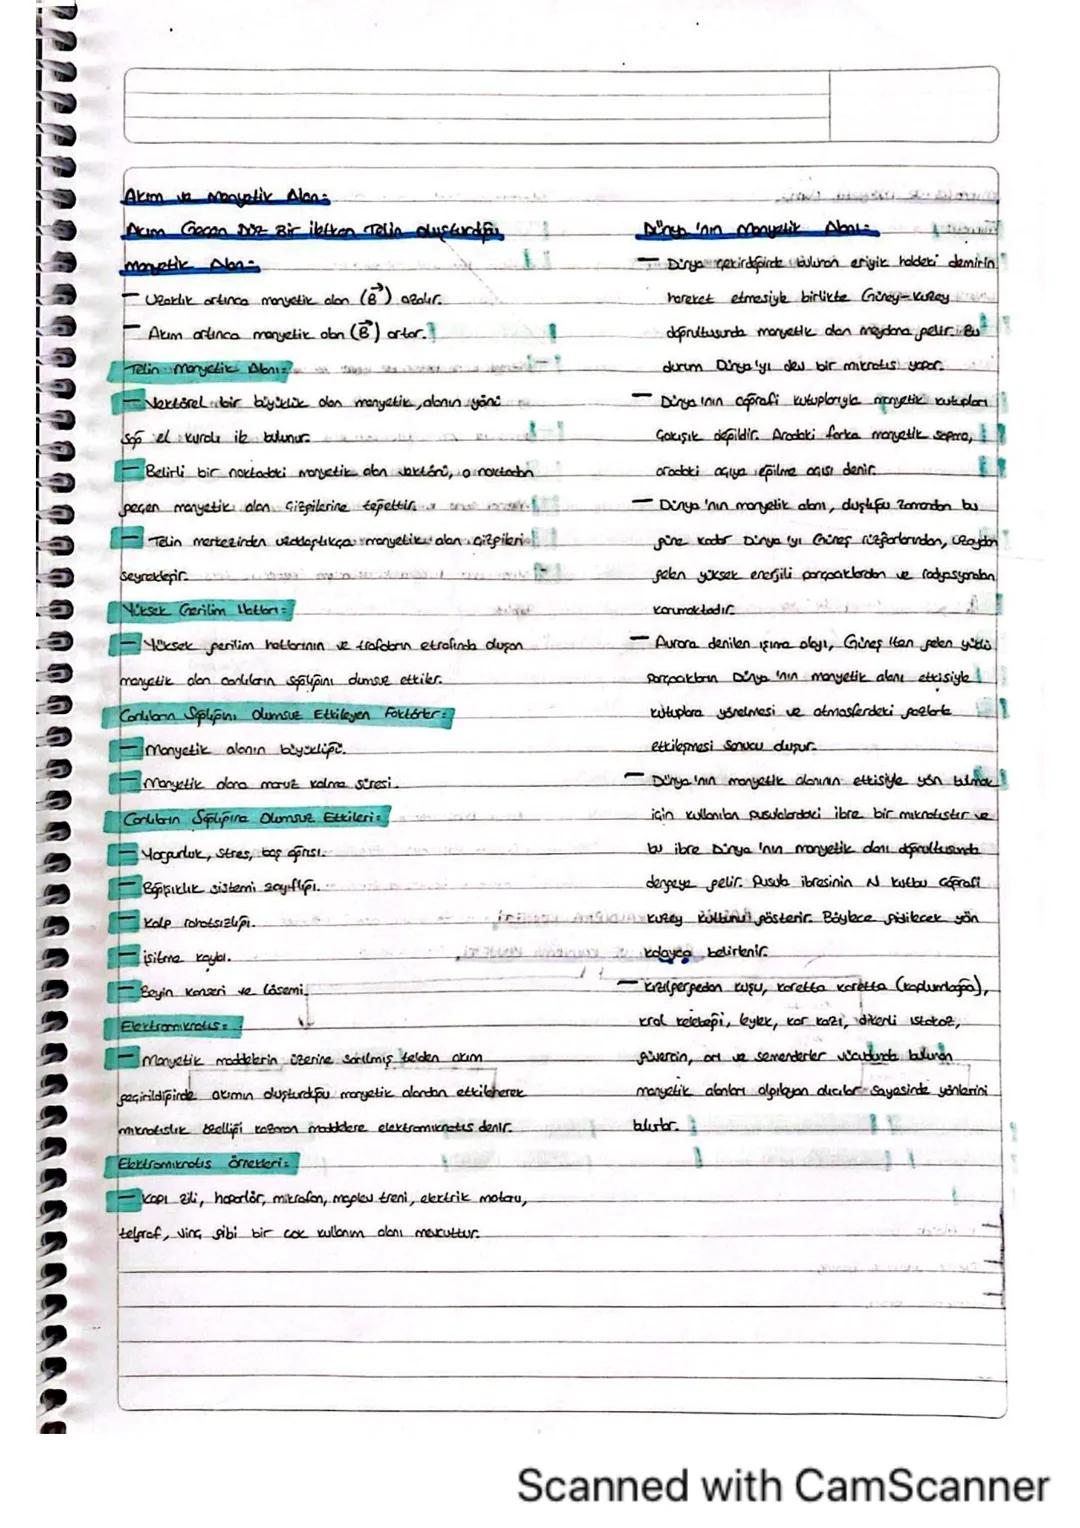 Akım ve Manyetik Alan:
Akım Geçen Düz Bir İletken Telin Oluşturduğu
Manyetik Alan:
— Uzaklık artınca manyetik alan (B) azalır.
— Akım artınca manyetik alan (B) artar.
Telin Manyetik Alanı:
— Vektörel bir büyüklük olan manyetik, alanın yönü
sağ el kuralı ile bulunur.
— Belirli bir noktadaki manyetik alan vektörü, o noktadan
geçen manyetik alan çizgilerine teğettir.
— Telin merkezinden uzaklaştıkça manyetik alan çizgileri
seyrekleşir.
Yüksek Gerilim Hatları:
— Yüksek gerilim hatlarının ve trafoların etrafında oluşan
manyetik alan canlıların sağlığını olumsuz etkiler.
Canlıların Sağlığını Olumsuz Etkileyen Faktörler:
— Manyetik alanın büyüklüğü.
— Manyetik alana maruz kalma süresi.
Canlıların Sağlığına Olumsuz Etkileri:
— Yorgunluk, stres, baş ağrısı.
— Bağışıklık sistemi zayıflığı.
— Kalp rahatsızlığı.
— İşitme kaybı.
— Beyin kanseri ve lösemi.
Elektromıknatıs:
— Manyetik maddelerin üzerine sarılmış telden akım
geçirildiğinde akımın oluşturduğu manyetik alandan etkilenerek
mıknatıslık özelliği kazanan maddelere elektromıknatıs denir.
Elektromıknatıs Örnekleri:
— Kapı zili, hoparlör, mikrofon, maglev treni, elektrik motoru,
telgraf, vinç gibi bir çok kullanım alanı mevcuttur.
Dünya'nın Manyetik Alanı:
— Dünya çekirdeğinde bulunan eriyik haldeki demirin
hareket etmesiyle birlikte Güney-Kuzey
doğrultusunda manyetik alan meydana gelir. Bu
durum Dünya'yı dev bir mıknatıs yapar.
— Dünya'nın coğrafi kutuplarıyla manyetik kutupları
çakışık değildir. Aradaki farka manyetik sapma,
aradaki açıya eğilme açısı denir.
— Dünya'nın manyetik alanı, oluştuğu zamandan bu
güne kadar Dünya'yı Güneş rüzgarlarından, uzaydan
gelen yüksek enerjili parçacıklardan ve radyasyondan
korumaktadır.
— Aurora denilen ışıma olayı, Güneş'ten gelen yüklü
parçacıkların Dünya'nın manyetik alanı etkisiyle
kutuplara yönelmesi ve atmosferdeki gazlarla
etkileşmesi sonucu oluşur.
— Dünya'nın manyetik alanının etkisiyle yön bulmak
için kullanılan pusulalardaki ibre bir mıknatıstır ve
bu ibre Dünya'nın manyetik alanı doğrultusunda
dengeye gelir. Pusula ibresinin N kutbu coğrafi
kuzey kutbunu gösterir. Böylece gidilecek yön
kolayca belirlenir.
— Kızılgerdan kuşu, karetta karetta (kaplumbağa),
kral kelebeği, leylek, kar kazı, dikenli ıstakoz,
güvercin, arı ve semenderler vücudunda bulunan
manyetik alanları algılayan alıcılar sayesinde yönlerini
bulurlar.
Scanned with CamScanner